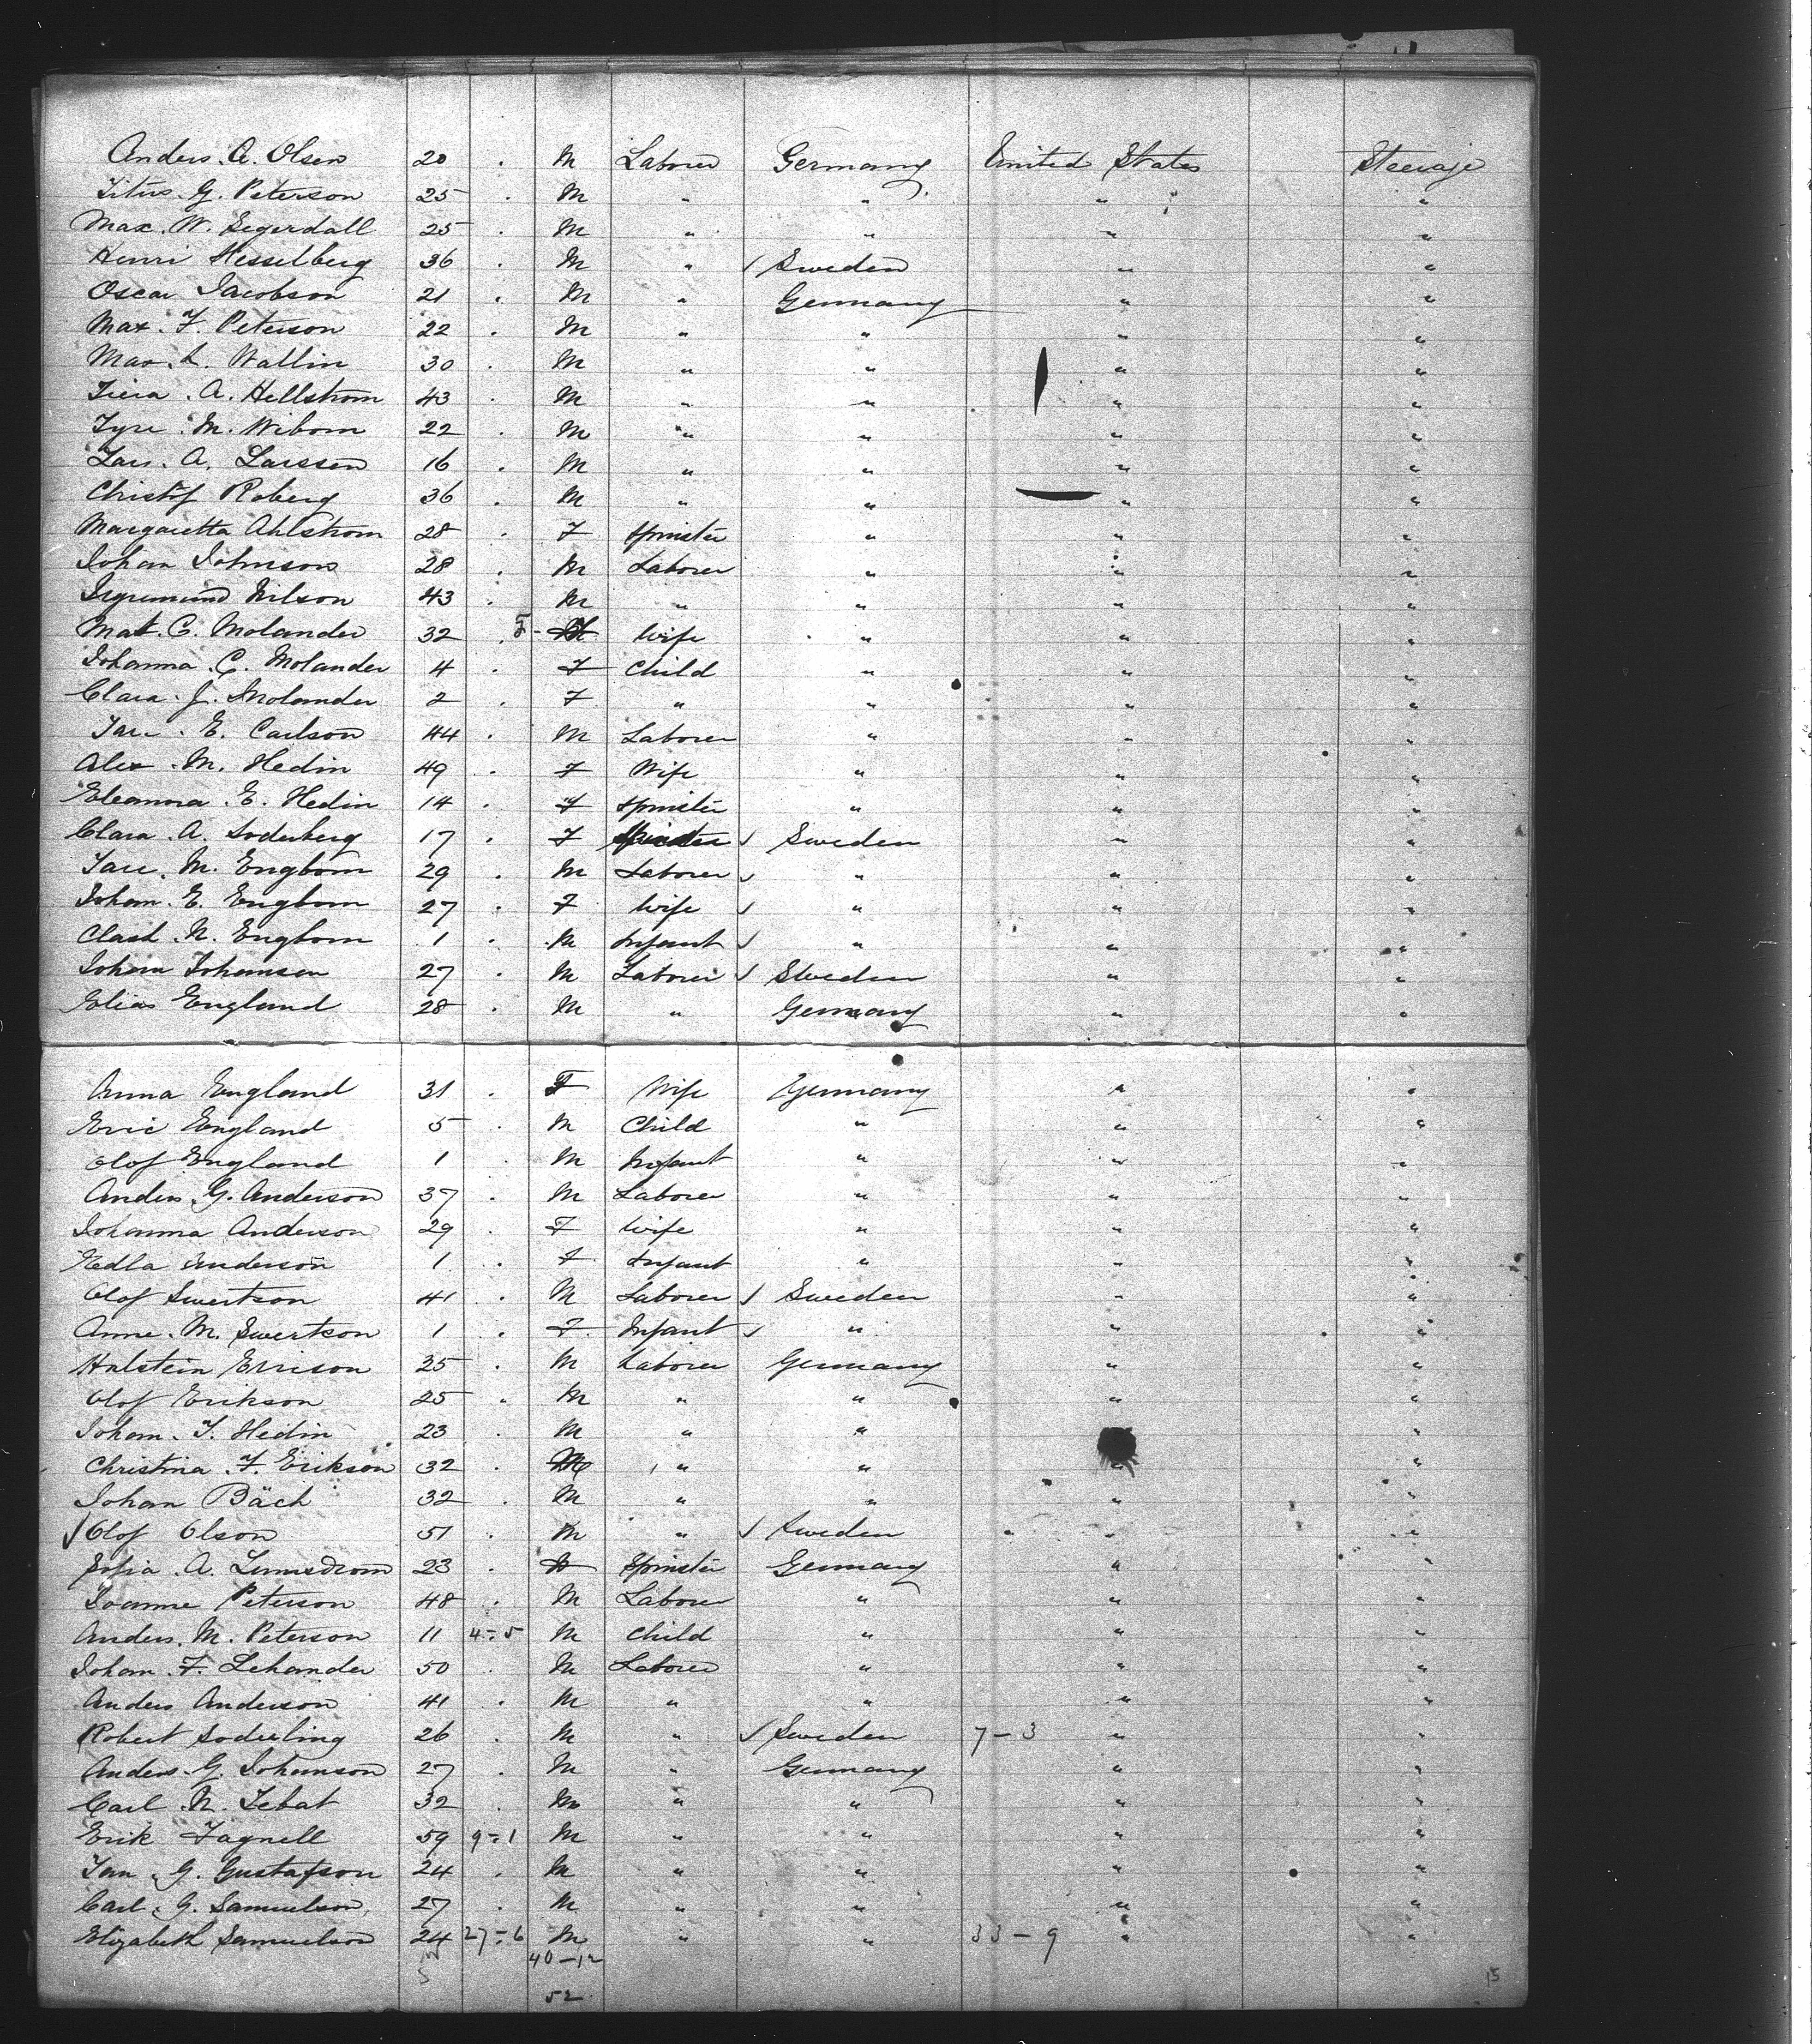 Anders. A. Olsen 20 . M Laborer Germany United States Steerage
Titus. G. Peterson 25 . M " " " "
Max. W. Segerdall 25 . M " " " "
Henri Hesselberg 36 . M " ✓ Sweden " "
Oscar Jacobson 21 . M " Germany " "
Max. F. Peterson 22 . M " " " "
Max. L. Wallin 30 . M " " " "
A. Hellstrom 43 . M " " " "
M. Wibom 22 . M " " " "
Lars. A. Larssen 16 . M " " " "
Christof Roberg 36 . M " " " "
Margaretta Ahlstrom 28 . F Spinster " " "
Johan Johnson 28 . M Laborer " " "
Nilson 43 . M " " " "
Mat. C. Molander 32 . F - M Wife " " "
Johanna. C. Molander 4 . F Child " " "
Clara. J. Molander 2 . F " " " "
E. Carlson 44 . M Laborer " " "
Alex. M. Hedin 49 . F Wife " " "
Eleanora. E. Hedin 14 . F Spinster " " "
Clara. A. Soderberg 17 . F Spinster ✓ Sweden " "
M. Engbom 29 . M Laborer ✓ " " "
Johan. E. Engbom 27 . F Wife ✓ " " "
N. Engbom 1 . M Infant ✓ " " "
Johan Johansen 27 . M Laborer ✓ Sweden " "
Elias England 28 . M " Germany " "
Anna England 31 . F Wife Germany " "
Eric England 5 . M Child " " "
Olof England 1 . M Infant " " "
Anders. G. Anderson 37 . M Laborer " " "
Johanna Anderson 29 . F Wife " " "
Hedla Anderson 1 . F Infant " " "
Olof Swertson 41 . M Laborer ✓ Sweden " "
Anne. M. Swertson 1 . F Infant ✓ " " "
Halstein Ericson 25 . M Laborer Germany " "
Olof Erikson 25 . M " " " "
Johan. F. Hedin 23 . M " " " "
Christina. F. Erikson 32 . M " " " "
Johan Bäch 32 . M " " " "
✓ Olof Olson 51 . M " ✓ Sweden " "
Sofia. A. 23 . Spinster Germany " "
Joanne Peterson 48 . M Laborer " " "
Anders. M. Peterson 11 4-5 M Child " " "
Johan. F. Lehander 50 . M Laborer " " "
Anders Anderson 41 . M " " " "
Robert Soderling 26 . M " ✓ Sweden 7-3 " "
Anders. G. Johanson 27 . M " Germany " "
Carl. N. Tebat 32 . M " " " "
Erik Fagnell 59 9-1 M " " " "
G. Gustafson 24 . M " " " "
Carl. G. Samuelson 27 . M " " " "
Elizabeth Samuelson 24 27-6 M " " 33-9 " "
40-12
52
15